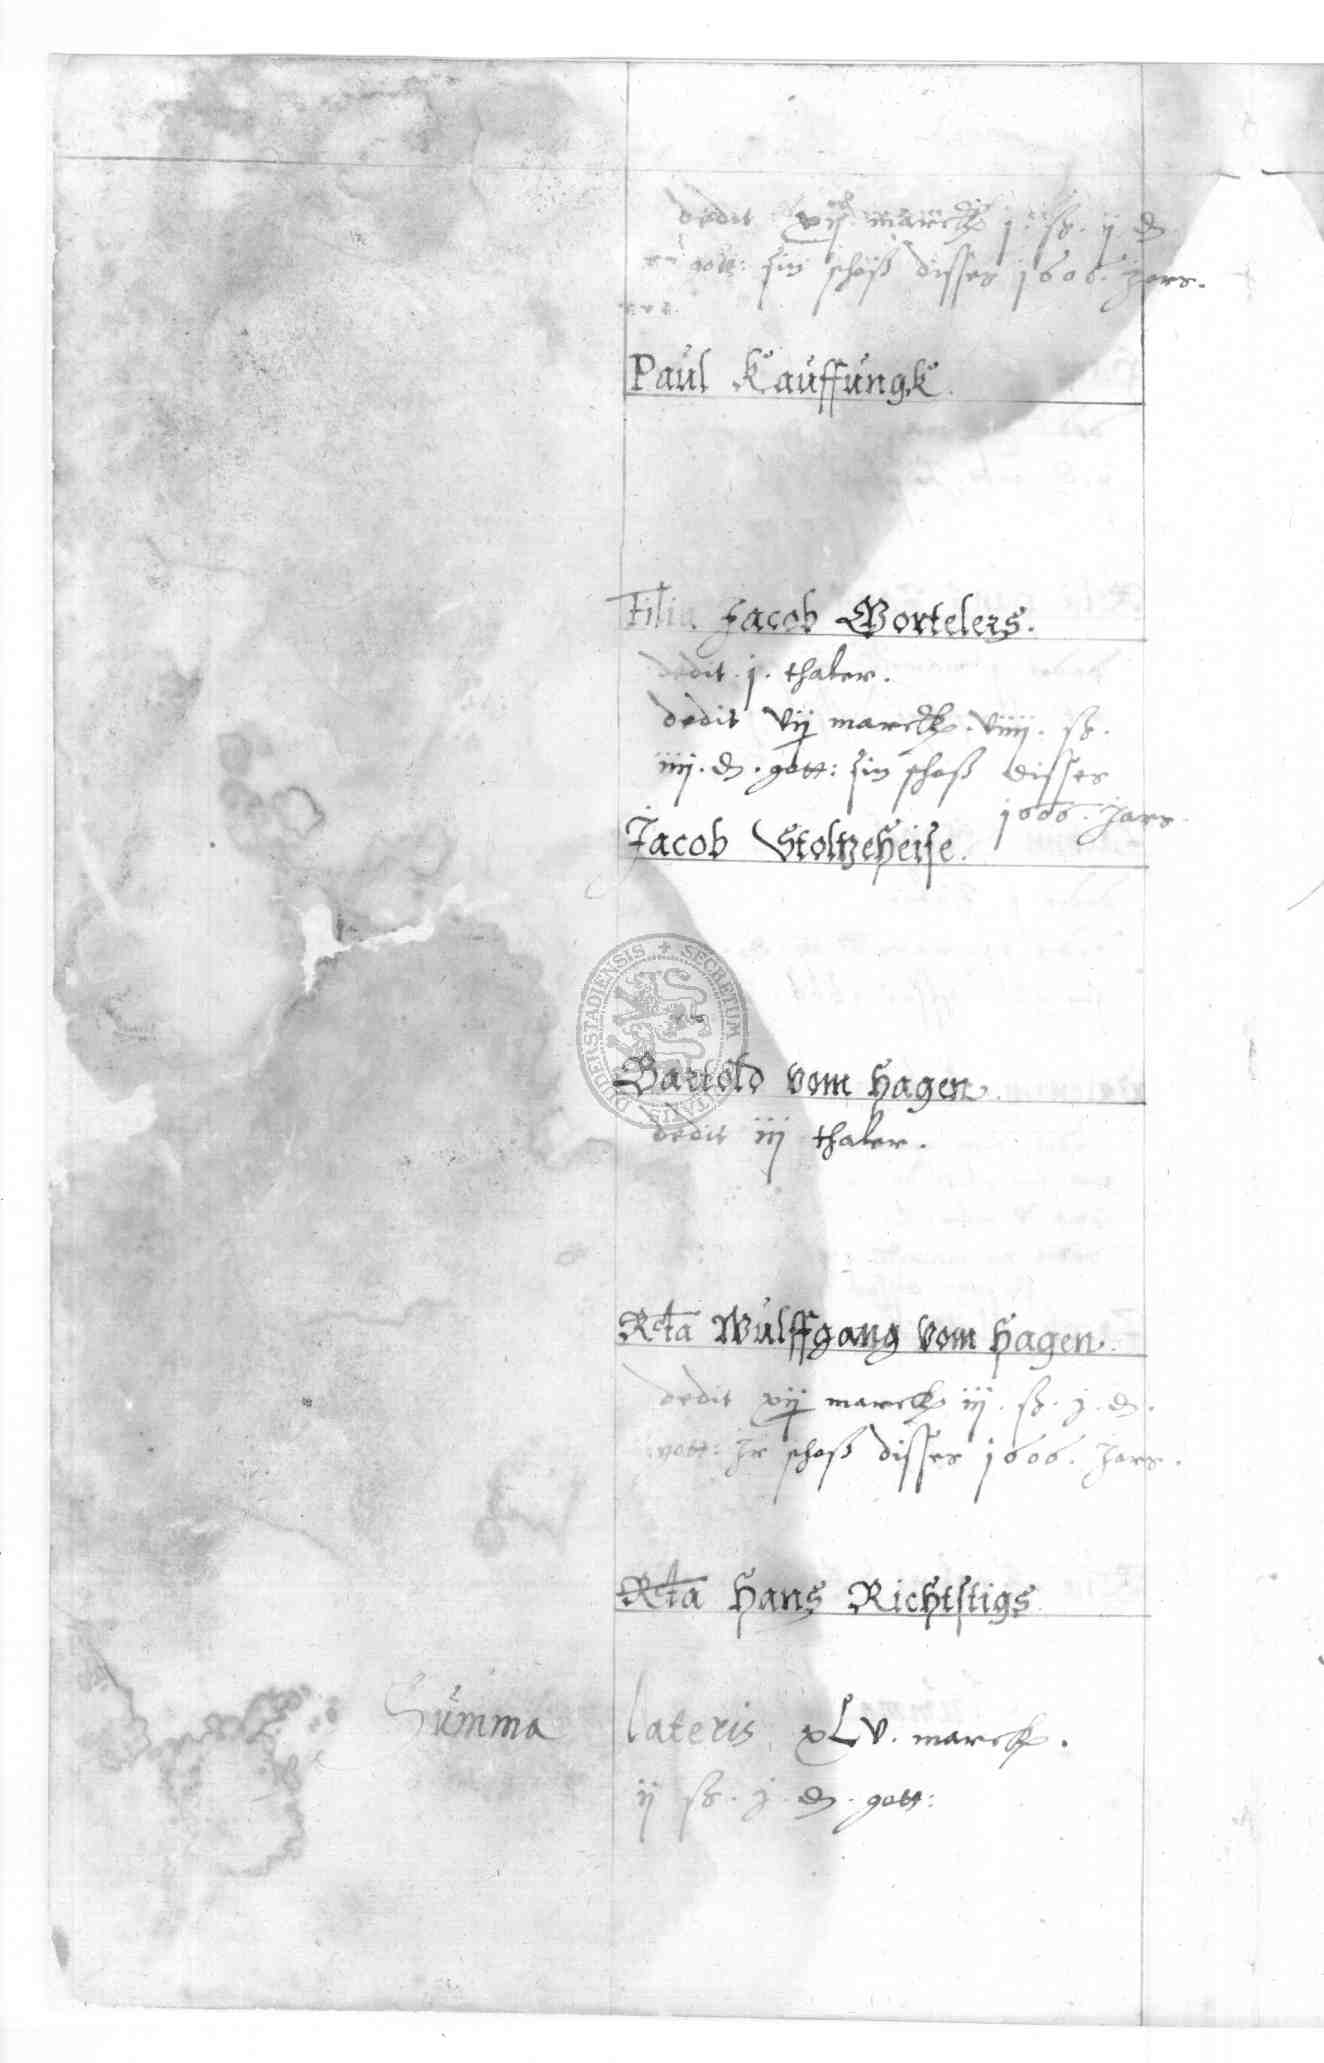 dedit xvij marck j ß. ij d.
gott: sin schoß disses 1606. Jars.
Paul Kauffungk.
Filia Jacob Wortelers.
dedit j. thaler.
dedit vij marck. viiij. ß.
iiij. d. gott: sin schoß disses
1606. Jars.
Jacob Stoltzeheise.
SECRETUM DUDERSTADIENSIS
Bartold vom Hagen.
dedit iij thaler.
Rcta Wulffgang vom Hagen.
dedit xij marck iij. ß. j. d.
gott: Jr schoß disses 1606. Jars.
Rcta Hans Richtstigs
Summa lateris xLv. marck.
ij ß. j. d. gott: